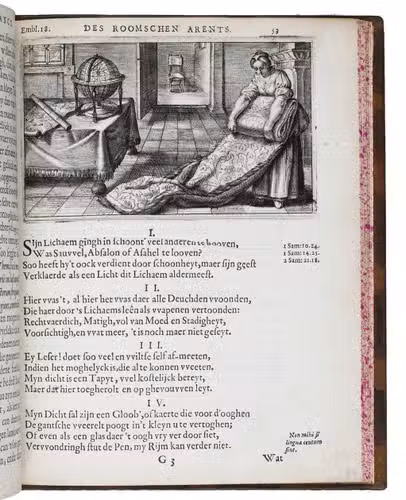 Embl. 18.
DES ROOMSCHEN ARENTS.
53
I.
Sijn Lichaem gingh in schoont' veel anderen te booven,
Was Sauvel, Absalon of Asahel te looven?
Soo heeft hy't oock verdient door schoonheyt, maer sijn geest
Verklaerde als een Licht dit Lichaem aldermeest.
1 Sam: 10. 24.
2 Sam: 14. 25.
2 Sam: 21. 18.
II.
Hier vvas't, al hier het vvas daer alle Deuchden vvoonden,
Die haer door 's Lichaems leên als vvapenen vertoonden:
Rechtvaerdich, Matigh, vol van Moed en Stadigheyt,
Voorsichtigh, en vvat meer, 't is noch maer niet geseyt.
III.
Ey Leser! doet soo veel en vviltse self af-meeten,
Indien het moghelyck is, die al te konnen vveeten.
Myn dicht is een Tapyt, veel kostelijck bereyt,
Maer dat hier toegherolt en op ghevouvven leyt.
IV.
Myn Dicht sal zijn een Gloob', of kaerte die voor d'ooghen
De gantsche vveerelt poogt in't kleyn u te vertoghen;
Of even als een glas daer 't oogh vry ver door siet,
Vervvondringh stut de Pen, my Rijm kan verder niet.
Non mihi si
lingua centum
sint.
G 3
Wat